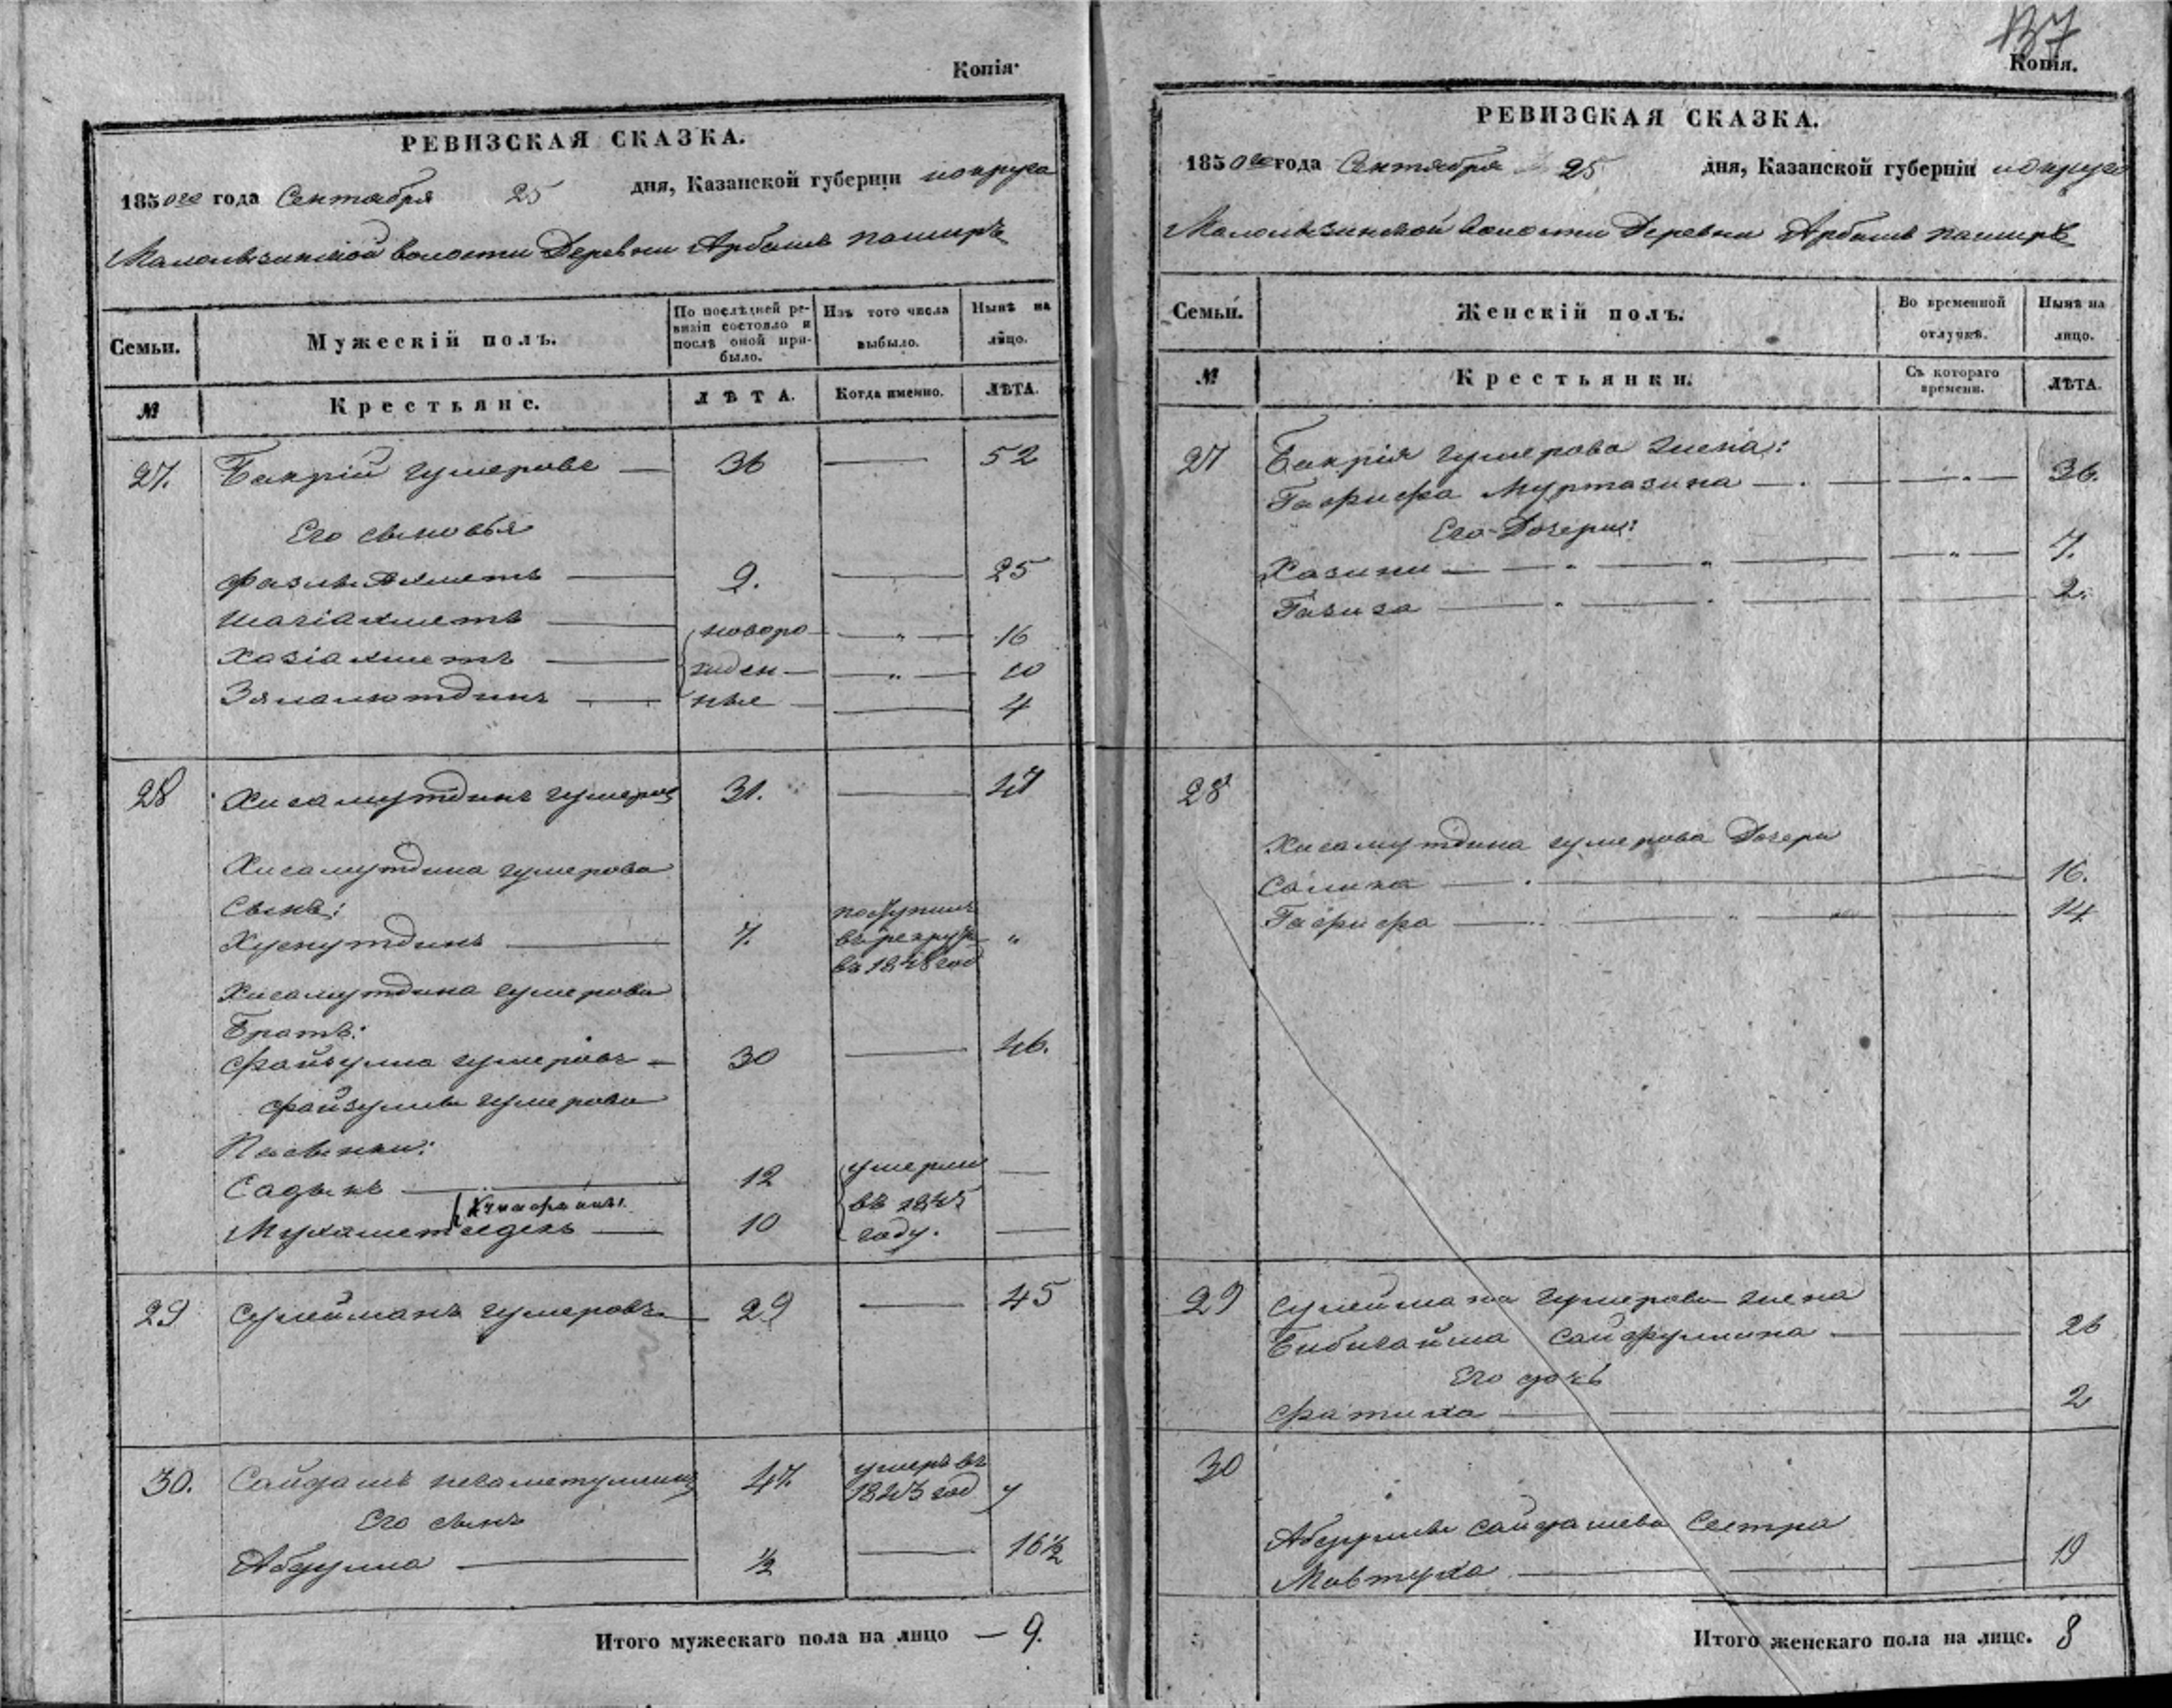 Копія.
РЕВИЗСКАЯ СКАЗКА.
1850го года Сентября 25 дня, Казанской губерніи и округа
волости Деревни Арбашъ
Семьи.
Мужескій полъ.
По послѣдней ре-
визіи состояло и
послѣ оной при-
было.
Изъ того числа
выбыло.
Нынѣ на
лицо.
№
Крестьяне.
ЛѢТА.
Когда именно.
ЛѢТА.
27. Бакрій Гумеровъ — 36 — 52
Его сыновья
Фазлыахметъ — 9. — 25
Шагіахметъ — новоро — „ — 16
Хазіахметъ — жден — „ — 10
Зямалютдинъ — ные — 4
28 Хисамутдинъ Гумеровъ 31. — 47
Хисамутдина Гумерова
Сынъ:
Хуснутдинъ — 7. поступилъ въ рекруты въ 1848 год „
Хисамутдина Гумерова
Братъ:
Файзулла Гумеровъ — 30 — 46.
Файзуллы Гумерова
Пасынки:
Садыкъ — 12 умерли —
Мухамет — 10 въ 1845 году. —
29 Сулейманъ Гумеровъ — 29 — 45
30. Сайдашъ 47. умеръ въ 1843 год „
Его сынъ
Абдулла — ½ — 16½
Итого мужескаго пола на лицо — 9.
137
Копія.
РЕВИЗСКАЯ СКАЗКА.
1850го года Сентября 25 дня, Казанской губерніи и округа
волости Деревни Арбашъ
Семьи.
Женскій полъ.
Во временной
отлучкѣ.
Нынѣ на
лицо.
№
Крестьянки.
Съ котораго
времени.
ЛѢТА.
27 Бакрія Гумерова жена:
Гафифа Муртазина — 36.
Его Дочери:
Хазини — 7.
Газиза — 2.
28
Хисамутдина Гумерова Дочери
Салиха — 16.
Гафифа — 14
29 Сулеймана Гумерова жена
Бибигайша Сайфуллина — 26
Его дочь
Фатиха — 2
30
Абдуллы Сайдашева Сестра
Мавтуха — 19
Итого женскаго пола на лицо. 8